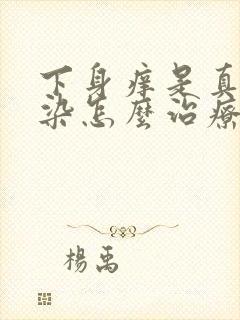 下身痒是真
染怎麽治療
楊禹